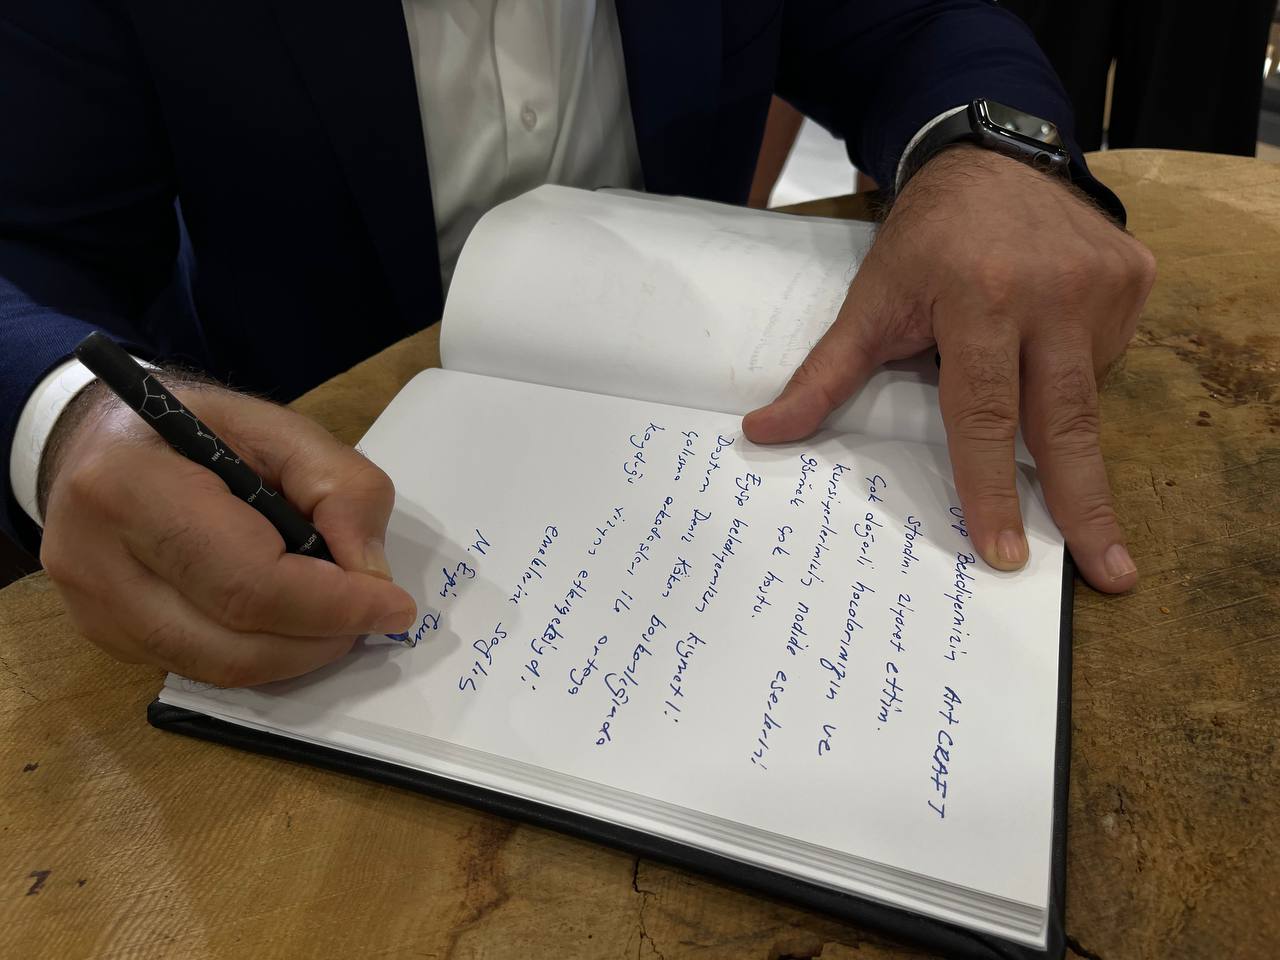 Belediyemizin Art CRAFT
standını ziyaret ettim.
Çok değerli hocalarımızın ve
kursiyerlerimizin nadide eserlerini
görmek çok hoştu.
Eyüp belediyemizin kıymetli
Dostum Deniz Kökən başkanlığında
çalışma arkadaşları ile ortaya
koyduğu vizyon etkileyiciydi
emeklerine sağlık
M.